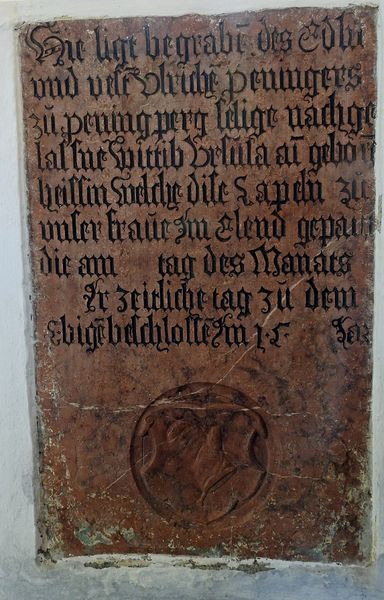 Hie ligt begrabē des Edln
und vest Ulrichē peningers
zū peningperg selige nachge
lassne Wittib Ursula aī geborn
heissin welche dise Kapeln zū
unser fraue Im Elend gepaut
die am tag des Manats
Ir zeitliche tag zū dem
Ebigē beschlosse Im 15 Jar